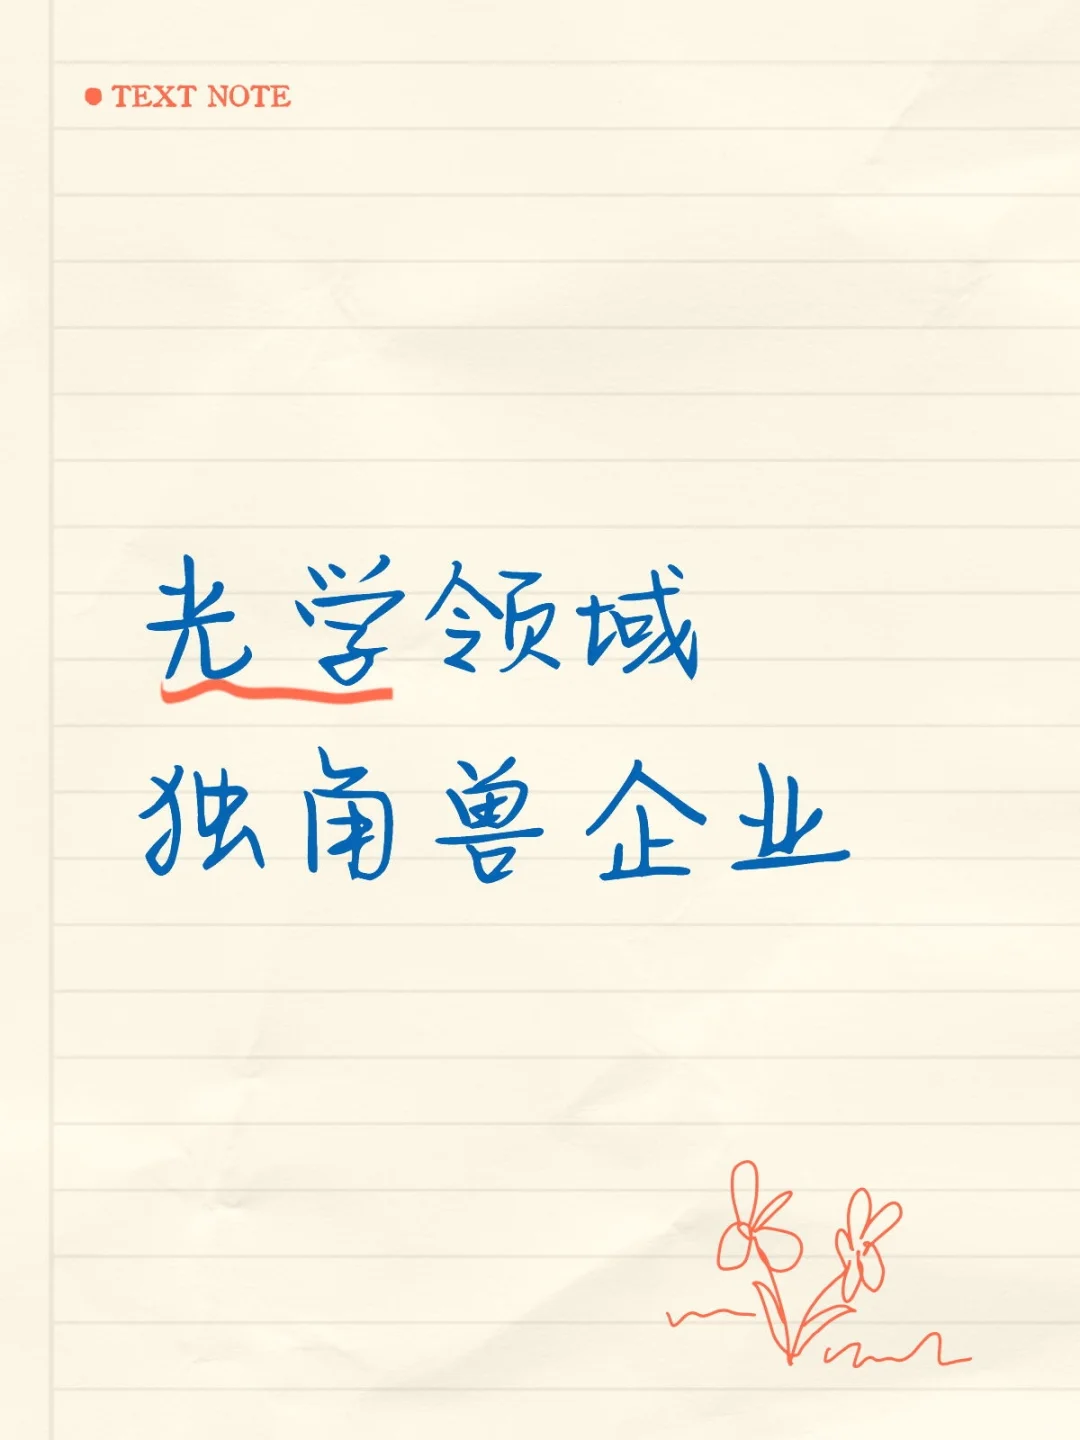 TEXT NOTE
光学领域
独角兽企业